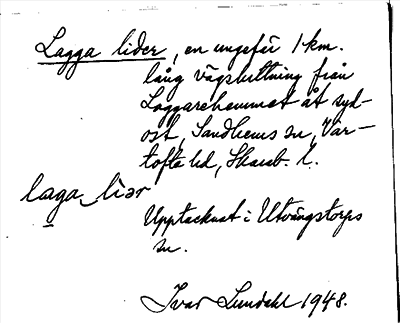 Lagga lider, en ungefär 1 km.
lång vägsluttning från
Loggarehemmet åt syd-
ost, Sandhems sn, Var-
tofta hd, Skarab. l.
laga_liər
Upptecknat i Utvängstorps
sn.
Ivar Lundahl 1948.